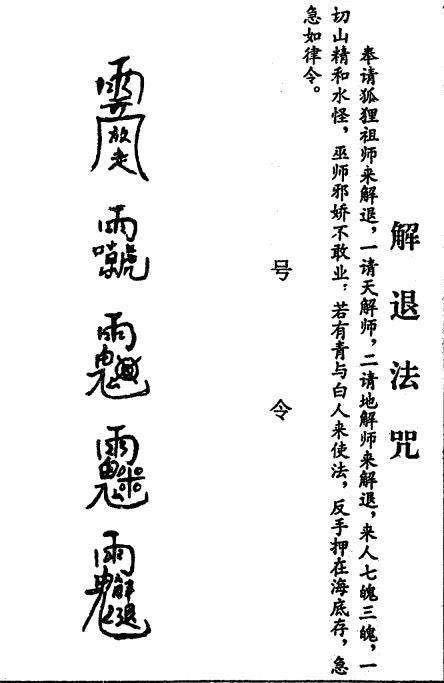 解退法咒
奉请狐狸祖师来解退，一请天解师，二请地解师来解退，来人七魄三魄，一
切山精和水怪，巫师邪娇不敢业；若有青与白人来使法，反手押在海底存，急
急如律令。
号令
放走
解退